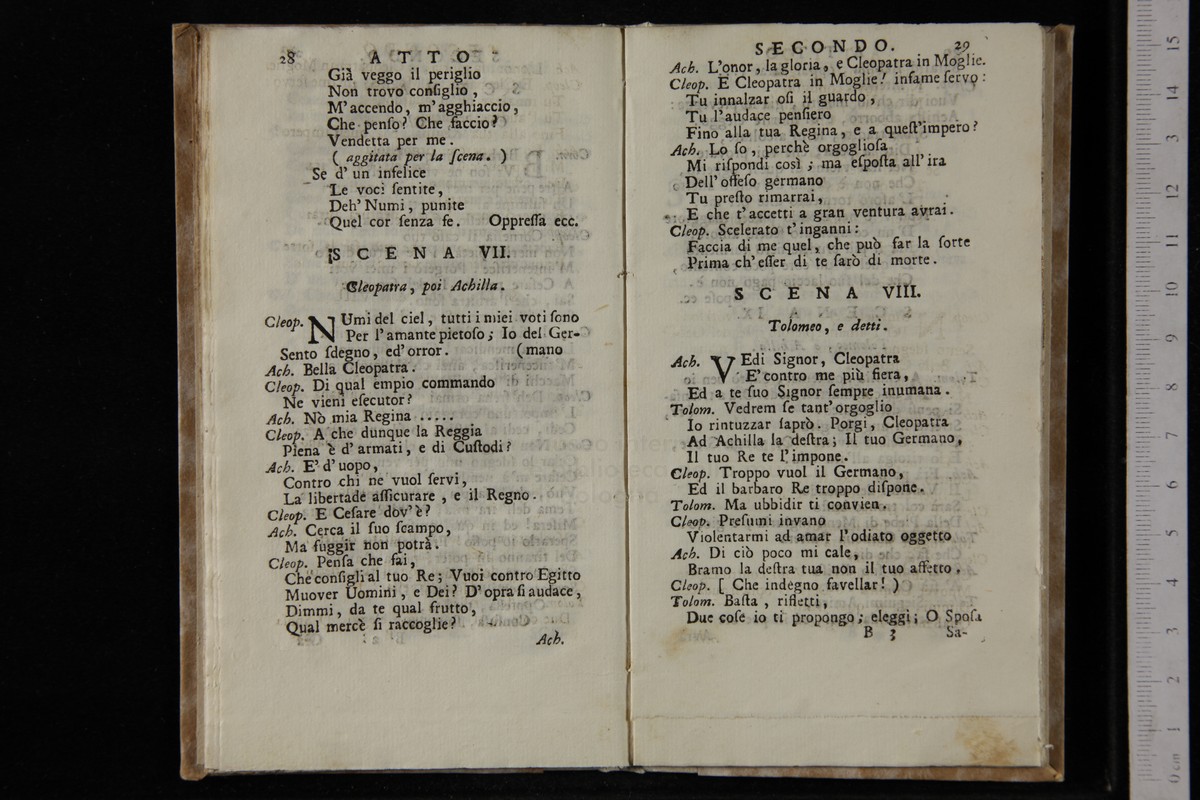 28 ATTO
Già veggo il periglio
Non trovo conſiglio,
M'accendo, m'agghiaccio,
Che penſo? Che faccio?
Vendetta per me.
( aggitata per la ſcena. )
Se d'un infelice
Le voci ſentite,
Deh' Numi, punite
Quel cor ſenza fe. Oppreſſa ecc.
SCENA VII.
Cleopatra, poi Achilla.
Cleop. NUmi del ciel, tutti i miei voti ſono
Per l'amante pietoſo; Io del Ger-
Sento ſdegno, ed'orror. (mano
Ach. Bella Cleopatra.
Cleop. Di qual empio commando
Ne vieni eſecutor?
Ach. Nò mia Regina .....
Cleop. A che dunque la Reggia
Piena è d'armati, e di Cuſtodi?
Ach. E' d'uopo,
Contro chi ne vuol ſervi,
La libertade aſſicurare, e il Regno.
Cleop. E Ceſare dov'è?
Ach. Cerca il ſuo ſcampo,
Ma fuggir non potrà.
Cleop. Penſa che fai,
Che conſigli al tuo Re; Vuoi contro Egitto
Muover Uomini, e Dei? D'opra ſi audace,
Dimmi, da te qual frutto,
Qual mercè ſi raccoglie?
Ach.
SECONDO. 29
Ach. L'onor, la gloria, e Cleopatra in Moglie.
Cleop. E Cleopatra in Moglie! infame ſervo:
Tu innalzar oſi il guardo,
Tu l'audace penſiero
Fino alla tua Regina, e a queſt'impero?
Ach. Lo ſo, perchè orgoglioſa
Mi riſpondi così; ma eſpoſta all'ira
Dell'offeſo germano
Tu preſto rimarrai,
E che t'accetti a gran ventura avrai.
Cleop. Scelerato t'inganni:
Faccia di me quel, che può far la ſorte
Prima ch'eſſer di te ſarò di morte.
SCENA VIII.
Tolomeo, e detti.
Ach. VEdi Signor, Cleopatra
E' contro me più fiera,
Ed a te ſuo Signor ſempre inumana.
Tolom. Vedrem ſe tant'orgoglio
Io rintuzzar ſaprò. Porgi, Cleopatra
Ad Achilla la deſtra; Il tuo Germano,
Il tuo Re te l'impone.
Cleop. Troppo vuol il Germano,
Ed il barbaro Re troppo diſpone.
Tolom. Ma ubbidir ti convien.
Cleop. Preſumi invano
Violentarmi ad amar l'odiato oggetto
Ach. Di ciò poco mi cale,
Bramo la deſtra tua non il tuo affetto.
Cleop. [ Che indegno favellar! )
Tolom. Baſta, rifletti,
Due coſe io ti propongo; eleggi; O Spoſa
B 3 Sa-
0 cm 1 2 3 4 5 6 7 8 9 10 11 12 13 14 15